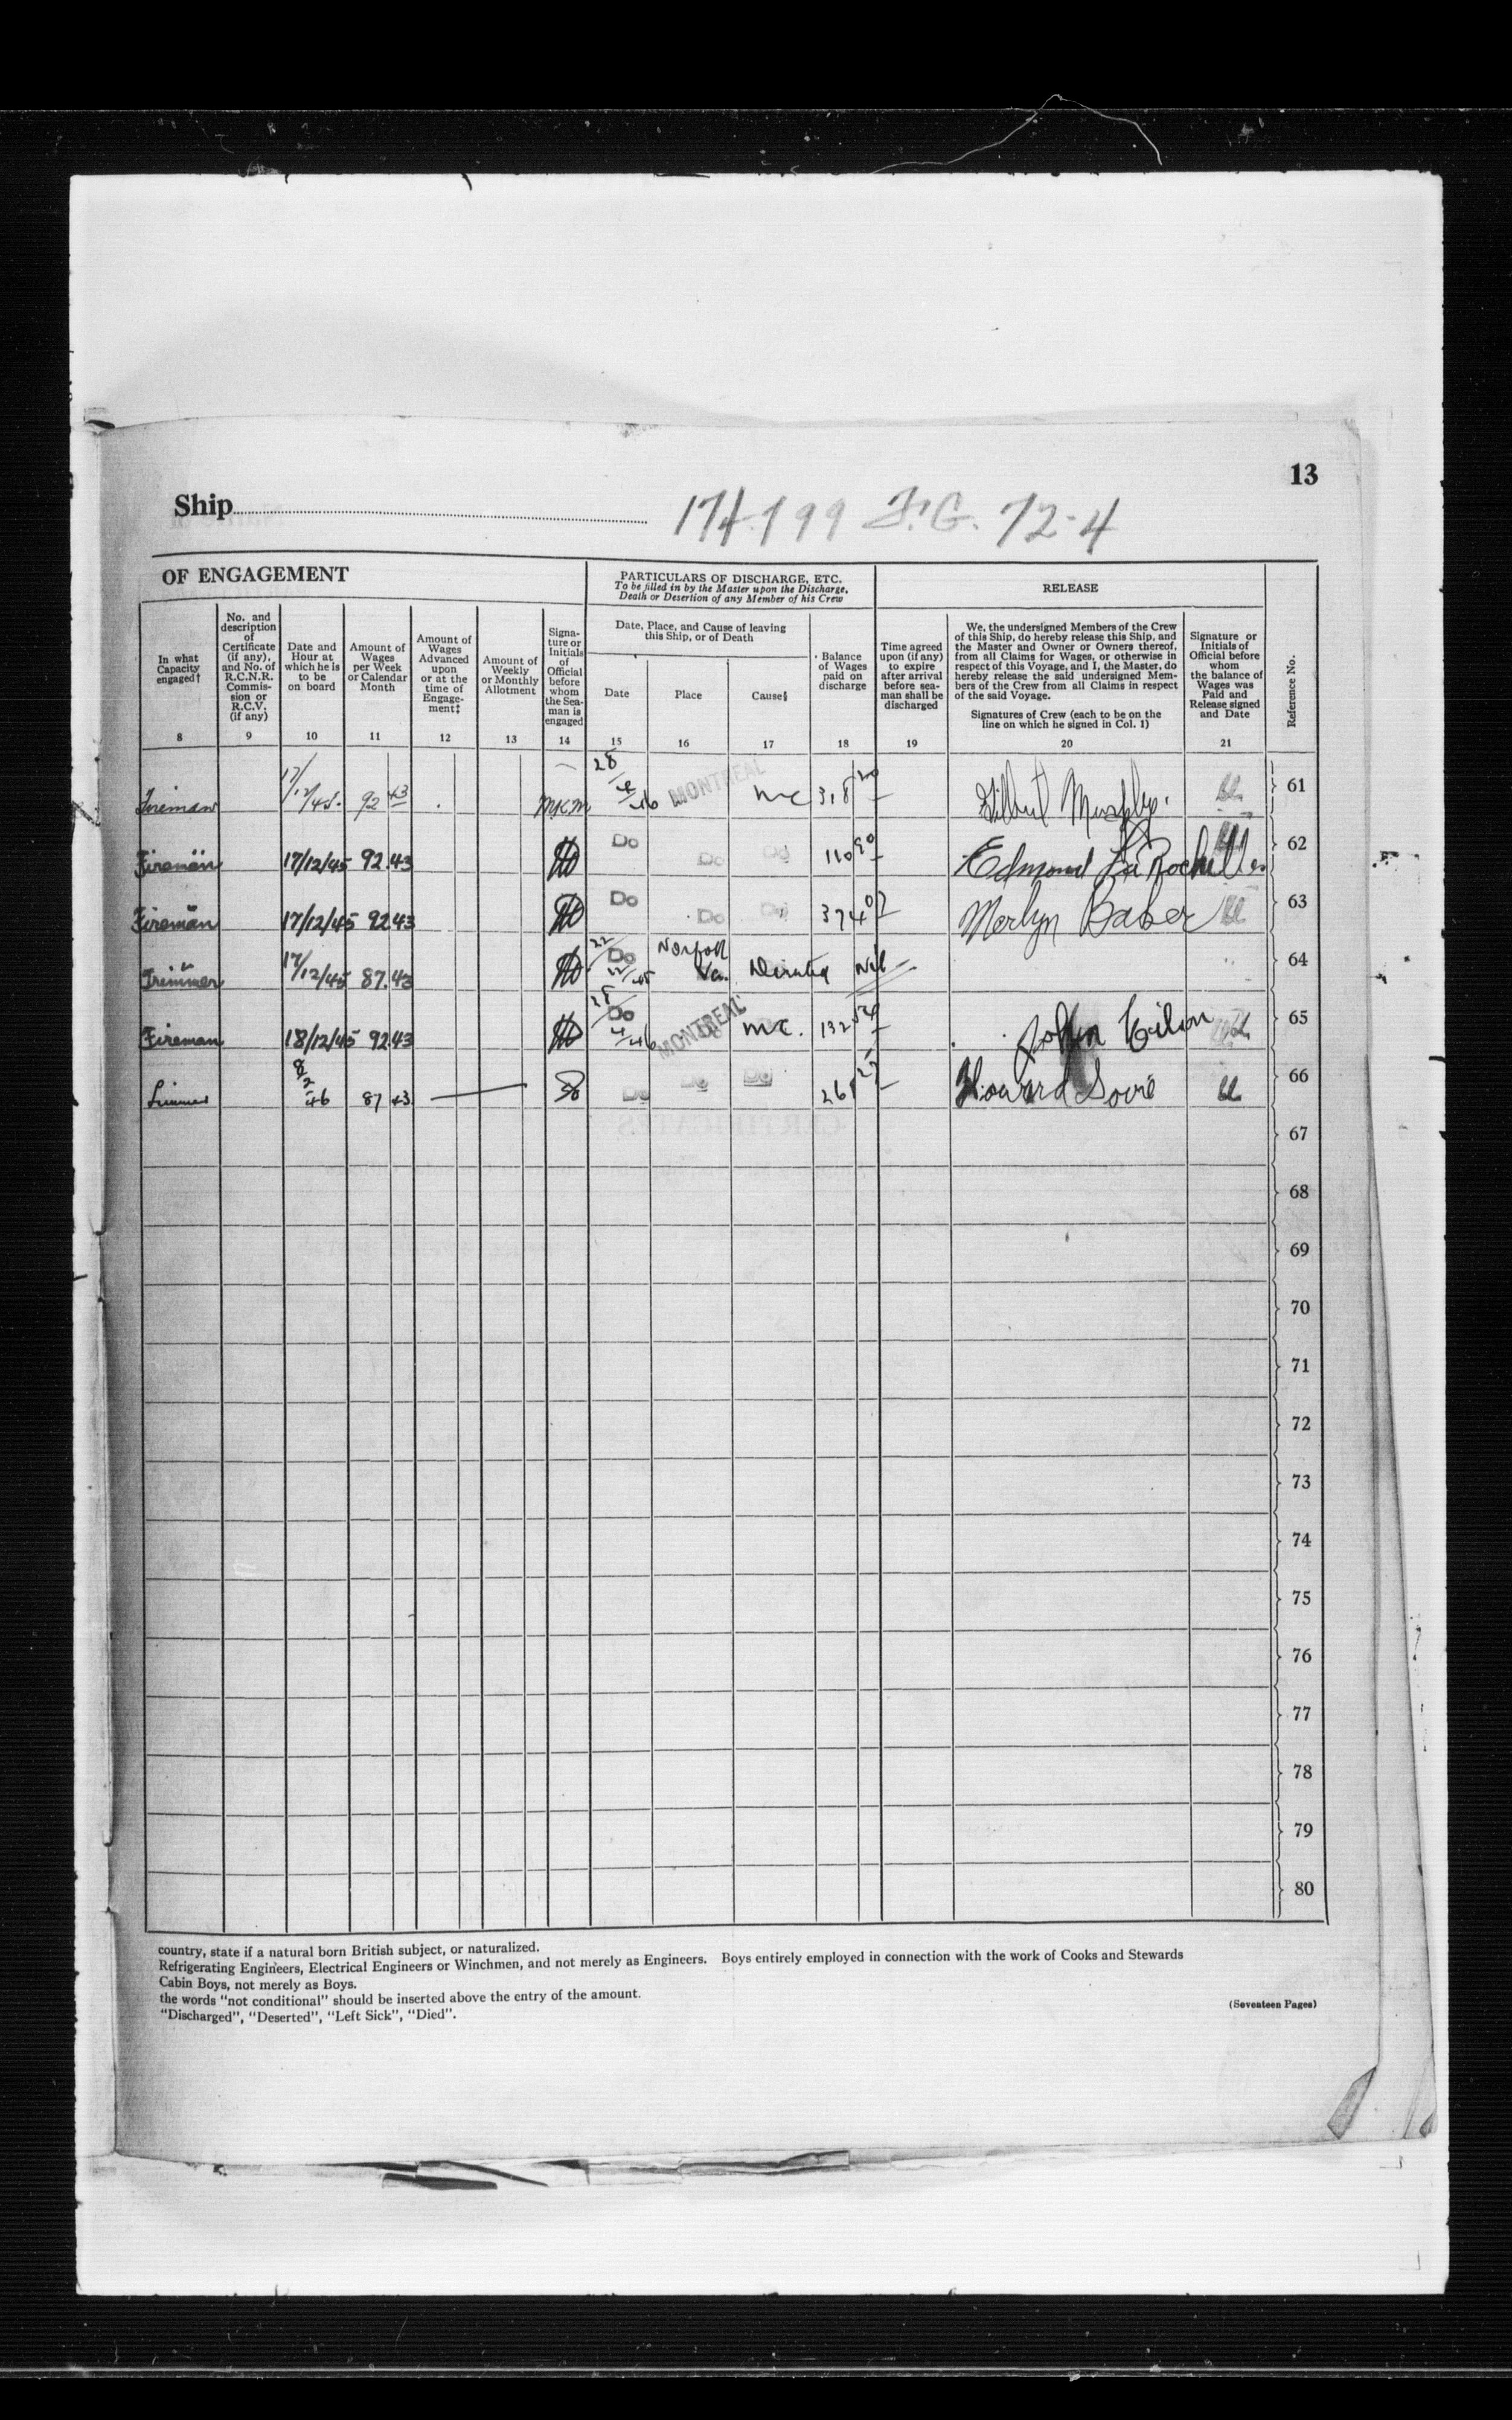 13
Ship
174.199 F.G. 72-4
OF ENGAGEMENT
PARTICULARS OF DISCHARGE, ETC.
To be filled in by the Master upon the Discharge,
Death or Desertion of any Member of his Crew
RELEASE
In what
Capacity
engaged†
8
No. and
description
of
Certificate
(if any),
and No. of
R.C.N.R.
Commis-
sion or
R.C.V.
(if any)
9
Date and
Hour at
which he is
to be
on board
10
Amount of
Wages
per Week
or Calendar
Month
11
Amount of
Wages
Advanced
upon
or at the
time of
Engage-
ment‡
12
Amount of
Weekly
or Monthly
Allotment
13
Signa-
ture or
Initials
of
Official
before
whom
the Sea-
man is
engaged
14
Date, Place, and Cause of leaving
this Ship, or of Death
Date
15
Place
16
Cause§
17
Balance
of Wages
paid on
discharge
18
Time agreed
upon (if any)
to expire
after arrival
before sea-
man shall be
discharged
19
We, the undersigned Members of the Crew
of this Ship, do hereby release this Ship, and
the Master and Owner or Owners thereof,
from all Claims for Wages, or otherwise in
respect of this Voyage, and I, the Master, do
hereby release the said undersigned Mem-
bers of the Crew from all Claims in respect
of the said Voyage.
Signatures of Crew (each to be on the
line on which he signed in Col. 1)
20
Signature or
Initials of
Official before
whom
the balance of
Wages was
Paid and
Release signed
and Date
21
Reference No.
Fireman 17/12/45. 92 43 MKM 28/4/46 MONTREAL 318 20 Gilbert Murphy. 61
Fireman 17/12/45 92.43 Do Do Do 110 90 Edmond LaRochelle 62
Fireman 17/12/45 92 43 Do Do Do 374 07 Merlyn Baber 63
Trimmer 17/12/45 87.43 22/12/45 Do Norfolk Va. Nil 64
Fireman 18/12/45 92 43 28/4/46 Do MONTREAL Do M.C. 132 John 65
87 43 Do Do Do 261 Howard 66
67
68
69
70
71
72
73
74
75
76
77
78
79
80
country, state if a natural born British subject, or naturalized.
Refrigerating Engineers, Electrical Engineers or Winchmen, and not merely as Engineers. Boys entirely employed in connection with the work of Cooks and Stewards
Cabin Boys, not merely as Boys.
the words "not conditional" should be inserted above the entry of the amount.
"Discharged", "Deserted", "Left Sick", "Died".
(Seventeen Pages)